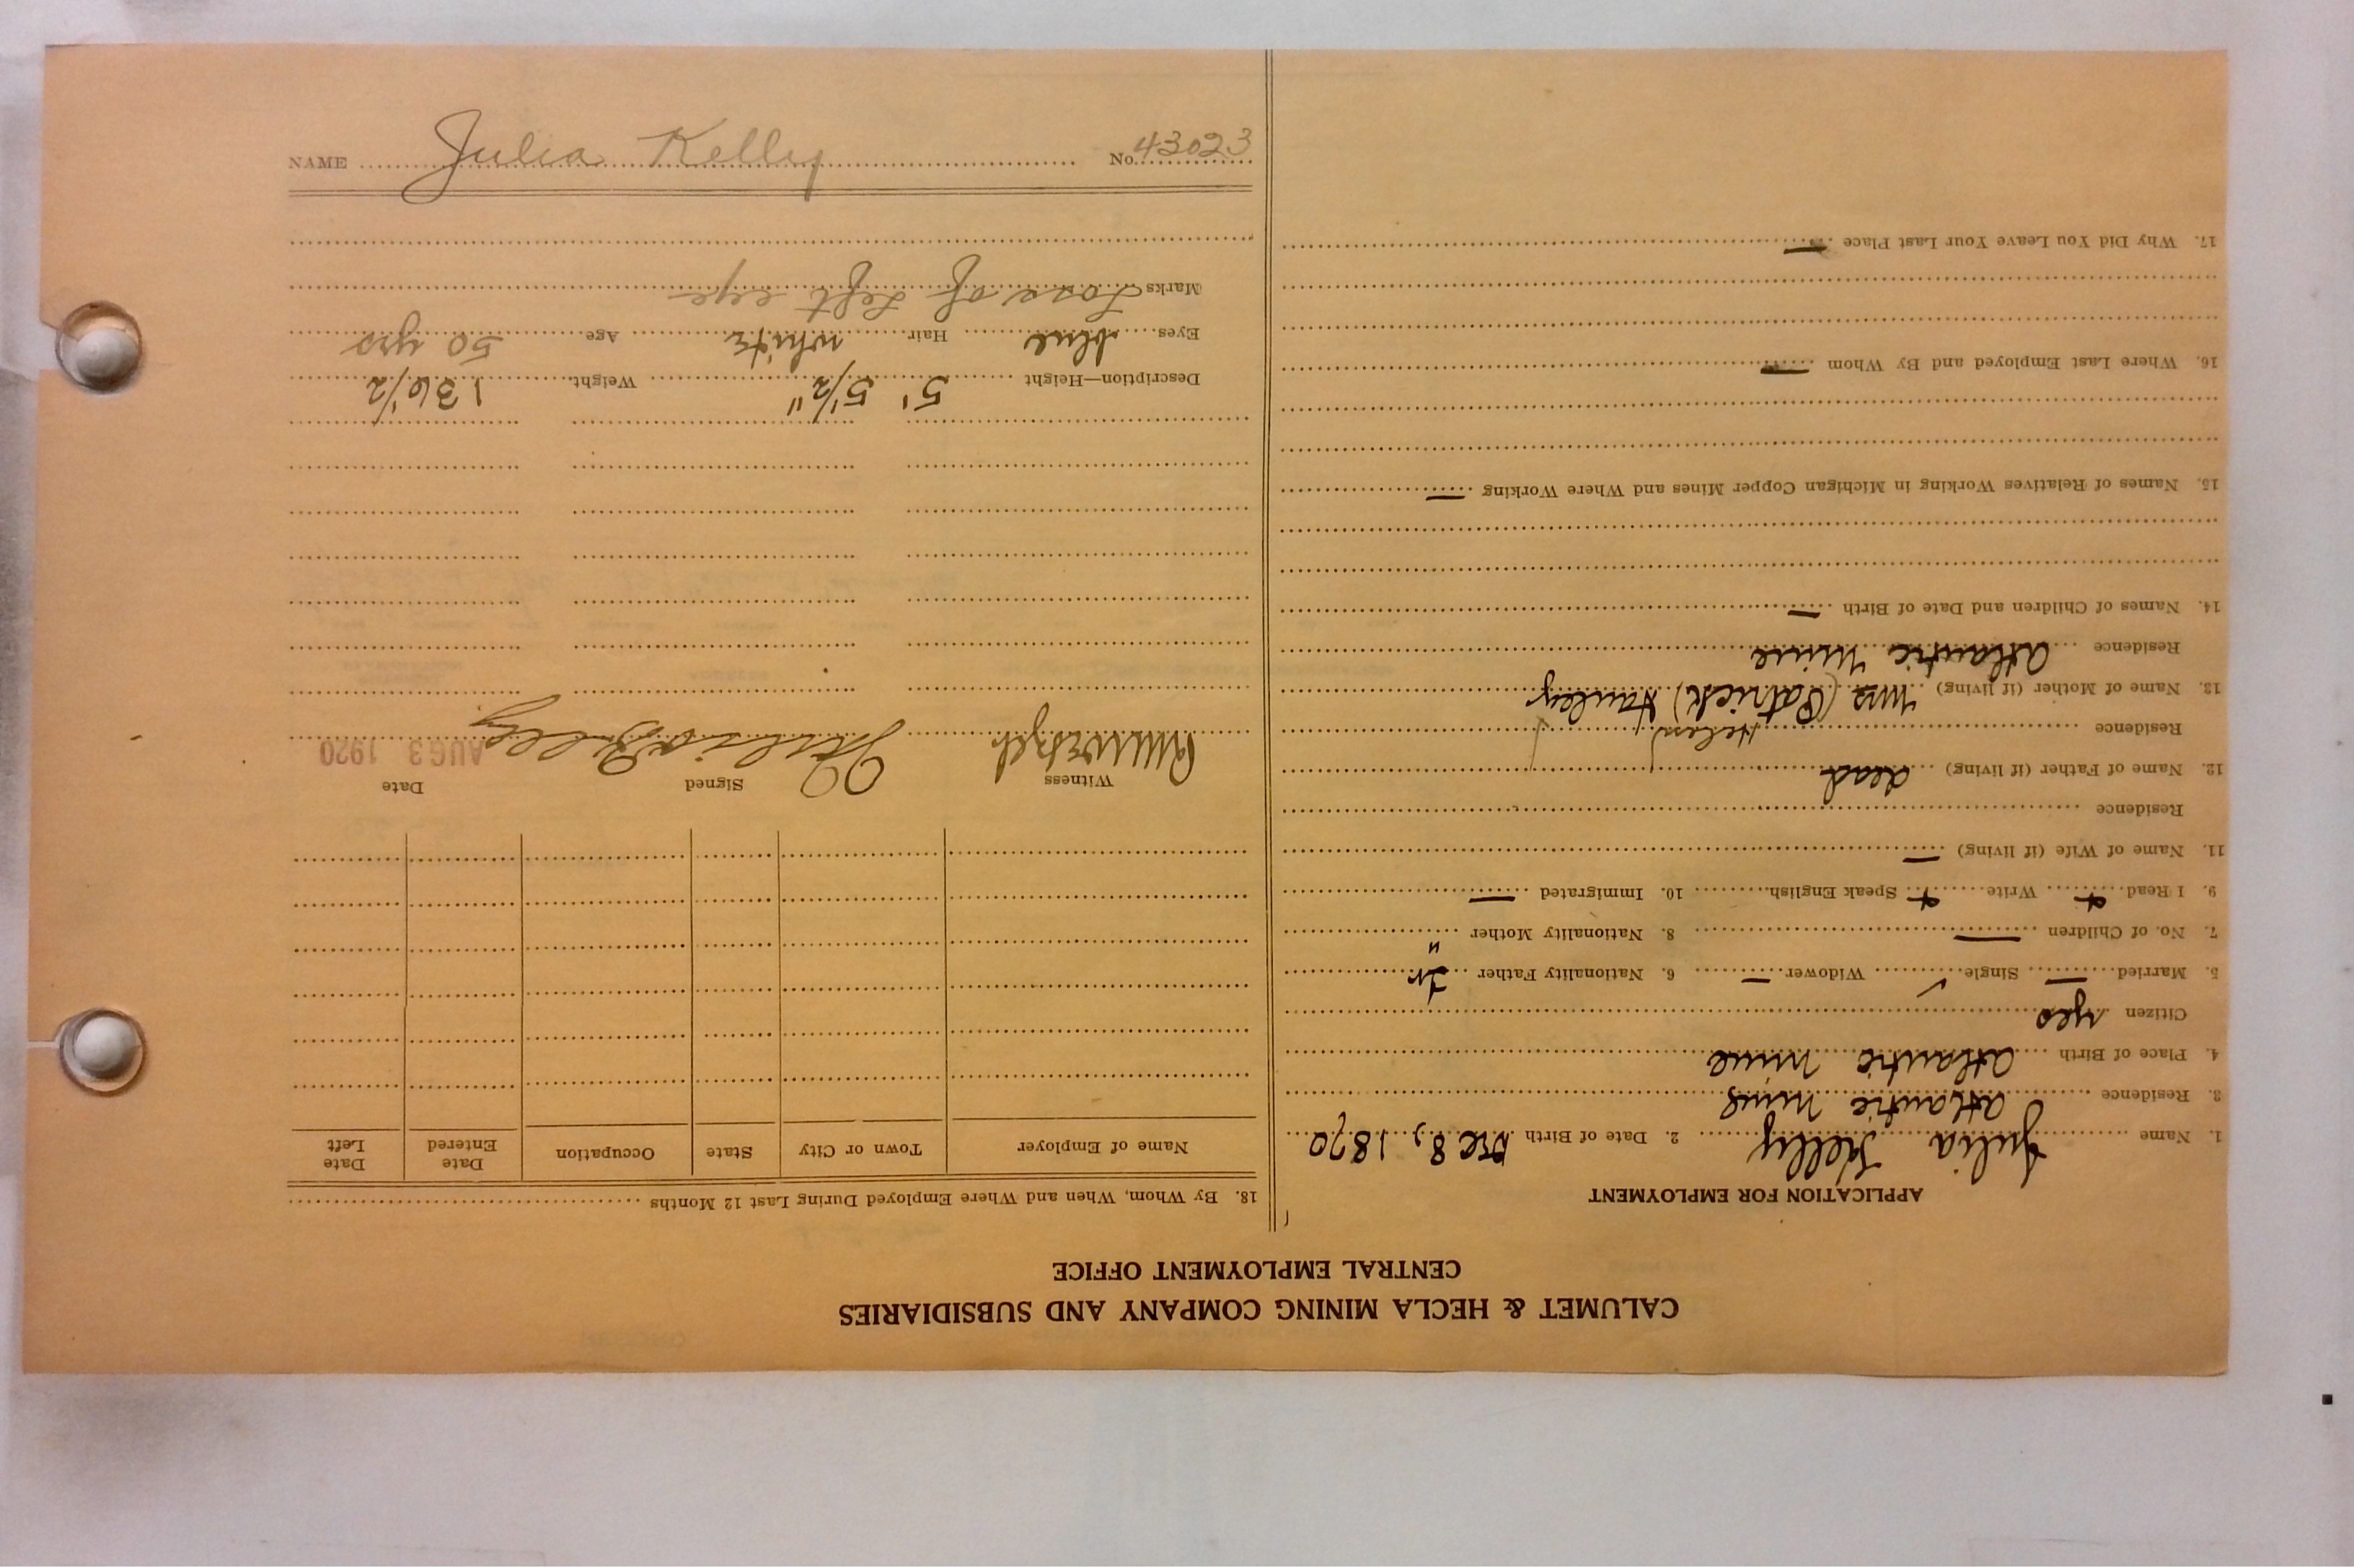 CALUMET & HECLA MINING COMPANY AND SUBSIDIARIES
CENTRAL EMPLOYMENT OFFICE
APPLICATION FOR EMPLOYMENT
1. Name Julia Kelly 2. Date of Birth Dec 8, 1870
3. Residence Atlantic Mine
4. Place of Birth Atlantic Mine
Citizen yes
5. Married — Single ✓ Widower — 6. Nationality Father Ir
7. No. of Children — 8. Nationality Mother "
9. I Read Write Speak English 10. Immigrated —
11. Name of Wife (if living) —
Residence
12. Name of Father (if living) dead
Residence
Helen
13. Name of Mother (if living) Mrs (Patrick)
Residence Atlantic Mine
14. Names of Children and Date of Birth —
15. Names of Relatives Working in Michigan Copper Mines and Where Working —
16. Where Last Employed and By Whom —
17. Why Did You Leave Your Last Place —
18. By Whom, When and Where Employed During Last 12 Months
Name of Employer Town or City State Occupation Date Entered Date Left
Witness Signed Date
Julia Kelly AUG 3 1920
Description—Height 5' 5½" Weight 136½
Eyes blue Hair white Age 50 yrs
Marks Loss of Left eye
NAME Julia Kelly No. 43023